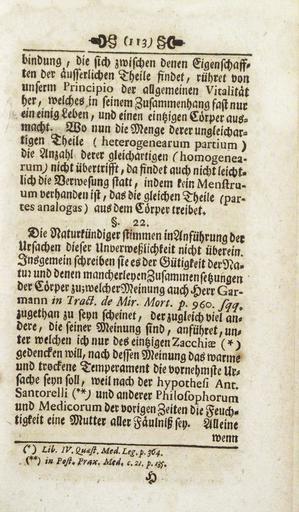 (113)
bindung, die sich zwischen denen Eigenschaff-
ten der äusserlichen Theile findet, rühret von
unserm Principio der allgemeinen Vitalität
her, welches in seinem Zusammenhang fast nur
ein einig Leben, und einen eintzigen Cörper aus-
macht. Wo nun die Menge derer ungleichar-
tigen Theile (heterogenearum partium)
die Anzahl derer gleichartigen (homogenea-
rum) nicht übertrifft, da findet auch nicht leicht-
lich die Verwesung statt, indem kein Menstru-
um verhanden ist, das die gleichen Theile (par-
tes analogas) aus dem Cörper treibet.
§. 22.
Die Naturkündiger stimmen in Anführung der
Ursachen dieser Unverweßlichkeit nicht überein.
Insgemein schreiben sie es der Gütigkeit der Na-
tur und denen mancherleyen Zusammensetzungen
der Cörper zu; welcher Meinung auch Herr Gar-
mann in Tract. de Mir. Mort. p. 960. sqq.
zugethan zu seyn scheinet, der zugleich viel an-
dere, die seiner Meinung sind, anführet, un-
ter welchen ich nur des eintzigen Zacchiæ (*)
gedencken will, nach dessen Meinung das warme
und trockene Temperament die vornehmste Ur-
sache seyn soll, weil nach der hypothesi Ant.
Santorelli (**) und anderer Philosophorum
und Medicorum der vorigen Zeiten die Feuch-
tigkeit eine Mutter aller Fäulniß sey. Alleine
wenn
(*) Lib. IV. Quæst. Med. Leg. p. 364.
(**) in Post. Prax. Med. c. 21. p. 135.
H